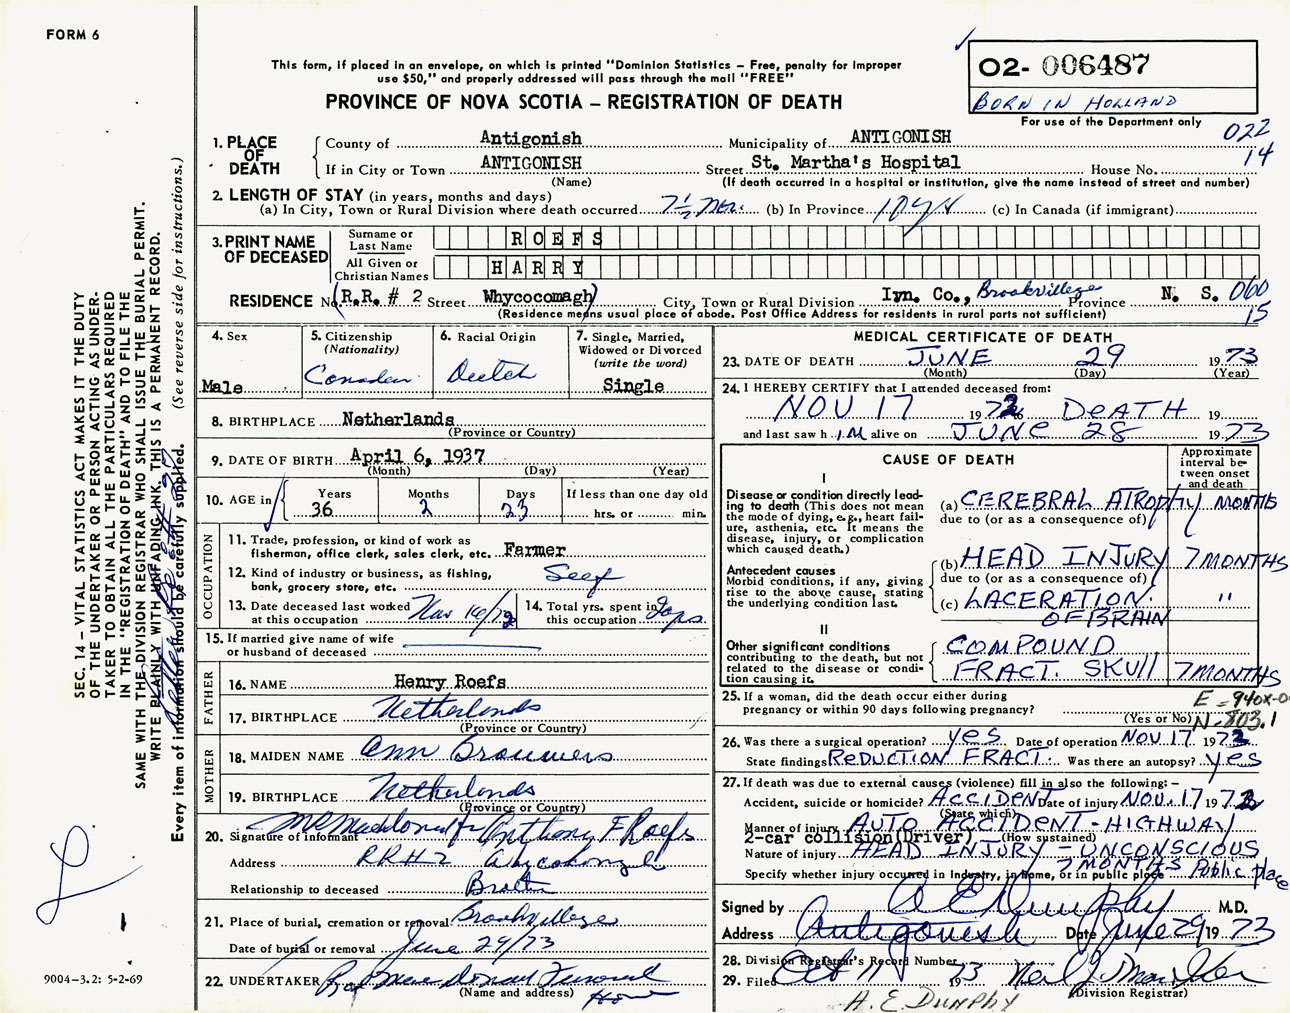 FORM 6
This form, if placed in an envelope, on which is printed "Dominion Statistics – Free, penalty for improper
use $50," and properly addressed will pass through the mail "FREE"
PROVINCE OF NOVA SCOTIA – REGISTRATION OF DEATH
02- 006487
BORN IN HOLLAND
For use of the Department only
022
14
1. PLACE OF DEATH
County of Antigonish Municipality of ANTIGONISH
If in City or Town ANTIGONISH Street St. Martha's Hospital House No.
(Name) (If death occurred in a hospital or institution, give the name instead of street and number)
2. LENGTH OF STAY (in years, months and days)
(a) In City, Town or Rural Division where death occurred 7½ mos. (b) In Province 19 yrs (c) In Canada (if immigrant)
3. PRINT NAME OF DECEASED
Surname or Last Name ROEFS
All Given or Christian Names HARRY
RESIDENCE No. (R.R. # 2 Street Whycocomagh) City, Town or Rural Division Inv. Co., Brookvillage Province N. S. 060
15
(Residence means usual place of abode. Post Office Address for residents in rural parts not sufficient)
4. Sex
Male
5. Citizenship
(Nationality)
Canadian
6. Racial Origin
Dutch
7. Single, Married,
Widowed or Divorced
(write the word)
Single
8. BIRTHPLACE Netherlands
(Province or Country)
9. DATE OF BIRTH April 6, 1937
(Month) (Day) (Year)
10. AGE in
Years 36
Months 2
Days 23
If less than one day old
hrs. or min.
OCCUPATION
11. Trade, profession, or kind of work as
fisherman, office clerk, sales clerk, etc. Farmer
12. Kind of industry or business, as fishing,
bank, grocery store, etc. Self
13. Date deceased last worked
at this occupation Nov 16/72
14. Total yrs. spent in
this occupation
15. If married give name of wife
or husband of deceased
FATHER
16. NAME Henry Roefs
17. BIRTHPLACE Netherlands
(Province or Country)
MOTHER
18. MAIDEN NAME Ann Brouwers
19. BIRTHPLACE Netherlands
(Province or Country)
20. Signature of informant Anthony F Roefs
Address RR#2 Whycocomagh
Relationship to deceased Brother
21. Place of burial, cremation or removal Brookvillage
Date of burial or removal June 29/73
22. UNDERTAKER Funeral
Home
(Name and address)
MEDICAL CERTIFICATE OF DEATH
23. DATE OF DEATH JUNE 29 1973
(Month) (Day) (Year)
24. I HEREBY CERTIFY that I attended deceased from:
NOV 17 1972 to DEATH 19
and last saw h im alive on JUNE 28 1973
CAUSE OF DEATH
Approximate interval between onset and death
I
Disease or condition directly leading to death (This does not
mean the mode of dying, e.g., heart failure, asthenia, etc. It means the
disease, injury, or complication
which caused death.)
(a) CEREBRAL ATROPHY MONTHS
due to (or as a consequence of)
Antecedent causes
Morbid conditions, if any, giving
rise to the above cause, stating
the underlying condition last.
(b) HEAD INJURY 7 MONTHS
due to (or as a consequence of)
(c) LACERATION "
OF BRAIN
II
Other significant conditions
contributing to the death, but not
related to the disease or condition causing it.
COMPOUND
FRACT. SKULL 7 MONTHS
25. If a woman, did the death occur either during
pregnancy or within 90 days following pregnancy?
(Yes or No)
N-803.1
26. Was there a surgical operation? yes Date of operation NOV 17 1972
State findings REDUCTION FRACT. Was there an autopsy? yes
27. If death was due to external causes (violence) fill in also the following: –
Accident, suicide or homicide? ACCIDENT Date of injury NOV. 17 1972
(State which)
Manner of injury AUTO ACCIDENT - HIGHWAY
2-car collision(Driver) (How sustained)
Nature of injury HEAD INJURY - UNCONSCIOUS
7 MONTHS
Specify whether injury occurred in Industry, in home, or in public place Public place
Signed by A E Dunphy M.D.
Address Antigonish Date June 29 1973
28. Division Registrar's Record Number
29. Filed Oct 11 1973
(Division Registrar)
A. E. DUNPHY
SEC. 14 – VITAL STATISTICS ACT MAKES IT THE DUTY
OF THE UNDERTAKER OR PERSON ACTING AS UNDER-
TAKER TO OBTAIN ALL THE PARTICULARS REQUIRED
IN THE "REGISTRATION OF DEATH" AND TO FILE THE
SAME WITH THE DIVISION REGISTRAR WHO SHALL ISSUE THE BURIAL PERMIT.
WRITE PLAINLY WITH UNFADING INK. THIS IS A PERMANENT RECORD.
Every item of information should be carefully supplied. (See reverse side for instructions.)
9004-3.2: 5-2-69